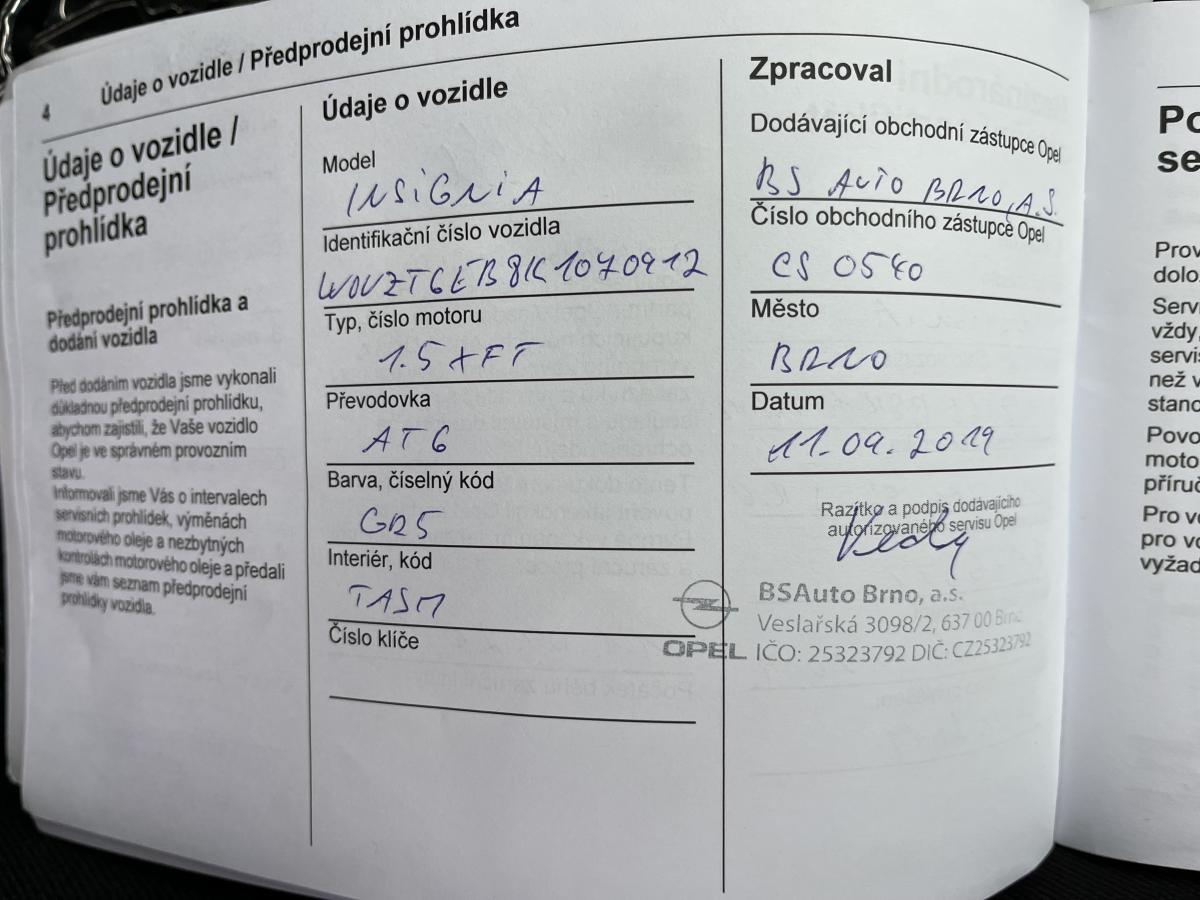 4
Údaje o vozidle / Předprodejní prohlídka
Údaje o vozidle /
Předprodejní
prohlídka
Předprodejní prohlídka a
dodání vozidla
Před dodáním vozidla jsme vykonali
důkladnou předprodejní prohlídku,
abychom zajistili, že Vaše vozidlo
Opel je ve správném provozním
stavu.
Informovali jsme Vás o intervalech
servisních prohlídek, výměnách
motorového oleje a nezbytných
kontrolách motorového oleje a předali
jsme vám seznam předprodejní
prohlídky vozidla.
Údaje o vozidle
Model
INSIGNIA
Identifikační číslo vozidla
W0VZT6EB8K1070912
Typ, číslo motoru
1.5 XFT
Převodovka
AT6
Barva, číselný kód
GR5
Interiér, kód
TASM
Číslo klíče
Zpracoval
Dodávající obchodní zástupce Opel
BS AUTO BRNO, A.S.
Číslo obchodního zástupce Opel
CS 0540
Město
BRNO
Datum
11.09.2019
Razítko a podpis dodávajícího
autorizovaného servisu Opel
OPEL
BSAuto Brno, a.s.
Veslařská 3098/2, 637 00 Brno
IČO: 25323792 DIČ: CZ25323792
Po
se
Prov
dolo
Serv
vždy,
servis
než v
stano
Povo
moto
příruč
Pro vo
pro vo
vyžad